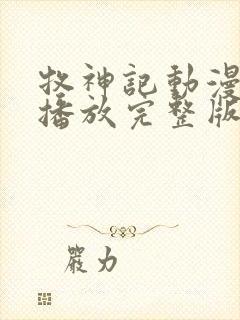 牧神記動漫
播放完整版
嚴力